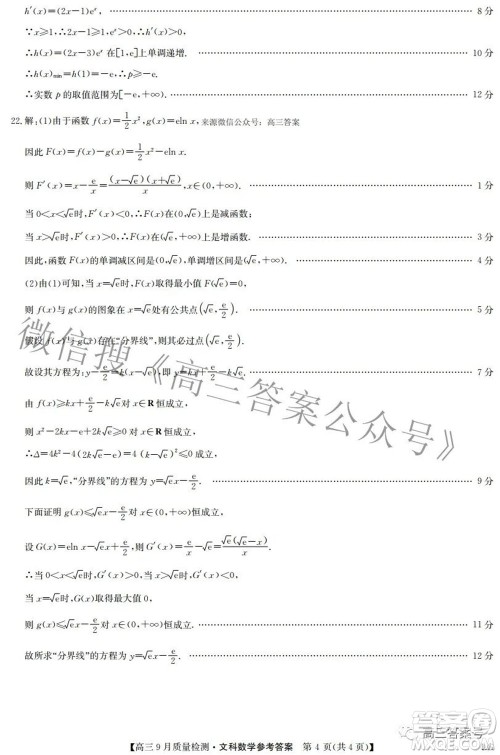 h′(x)=(2x−1)eˣ, …… 8分
∵x≥1,∴2x−1≥1,eˣ>0,∴h′(x)>0,
∴h(x)=(2x−3)eˣ在[1,e]上单调递增. …… 10分
∴h(x)min=h(1)=−e,∴p≥−e.
∴实数p的取值范围为[−e,+∞). …… 12分
22.解:(1)由于函数f(x)=1/2x²,g(x)=elnx, 来源微信公众号:高三答案
因此F(x)=f(x)−g(x)=1/2x²−elnx.
则F′(x)=x−e/x=(x−√e)(x+√e)/x,x∈(0,+∞). …… 1分
当0<x<√e时,F′(x)<0,∴F(x)在(0,√e)上是减函数;
当x>√e时,F′(x)>0,∴F(x)在(√e,+∞)上是增函数. …… 3分
因此,函数F(x)的单调减区间是(0,√e),单调增区间是(√e,+∞). …… 4分
(2)由(1)可知,当x=√e时,F(x)取得最小值F(√e)=0,
则f(x)与g(x)的图象在x=√e处有公共点(√e,e/2). …… 5分
假设f(x)与g(x)存在“分界线”,则其必过点(√e,e/2).
故设其方程为:y−e/2=k(x−√e),即y=kx+e/2−k√e. …… 7分
由f(x)≥kx+e/2−k√e对x∈R恒成立,
则x²−2kx−e+2k√e≥0对x∈R恒成立,
∴Δ=4k²−4(2k√e−e)=4(k−√e)²≤0成立,
因此k=√e,“分界线”的方程为y=√ex−e/2. …… 9分
下面证明g(x)≤√ex−e/2对x∈(0,+∞)恒成立.
设G(x)=elnx−√ex+e/2,则G′(x)=e/x−√e=√e(√e−x)/x.
∴当0<x<√e时,G′(x)>0,当x>√e时,G′(x)<0,
当x=√e时,G(x)取得最大值0,
则g(x)≤√ex−e/2对x∈(0,+∞)恒成立. …… 11分
故所求“分界线”的方程为y=√ex−e/2. …… 12分
微信搜《高三答案公众号》
【高三9月质量检测·文科数学参考答案 第4页(共4页)】
高三答案号